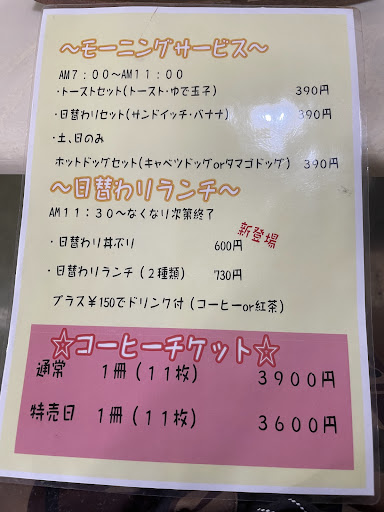 ～モーニングサービス～
AM7：00～AM11：00
・トーストセット(トースト・ゆで玉子) 390円
・日替わりセット(サンドイッチ・バナナ) 390円
・土、日のみ
ホットドッグセット(キャベツドッグorタマゴドッグ) 390円
～日替わりランチ～
AM11：30～なくなり次第終了
新登場
・日替わり丼ぶり 600円
・日替わりランチ(2種類) 730円
プラス¥150でドリンク付(コーヒーor紅茶)
☆コーヒーチケット☆
通常 1冊(11枚) 3900円
特売日 1冊(11枚) 3600円